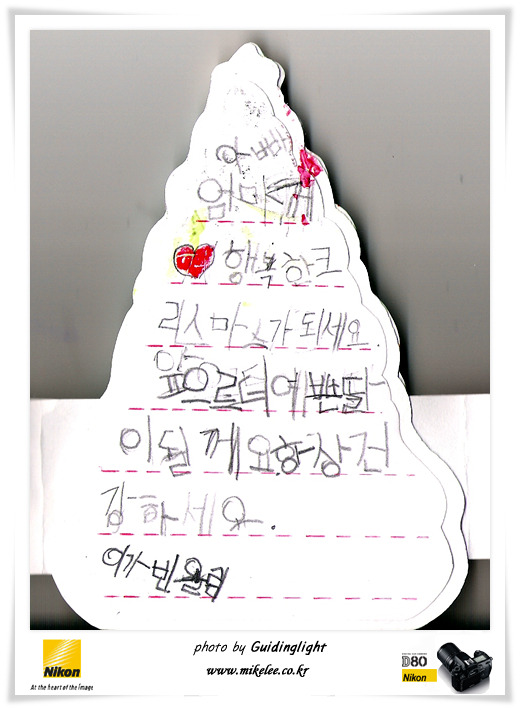 아빠
엄마께
행복한크
리스마스가되세요.
앞으르더예쁜딸
이될께요.항상건
강하세요.
이가빈
photo by Guidinglight
www.mikelee.co.kr
Nikon
At the heart of the image
D80
Nikon